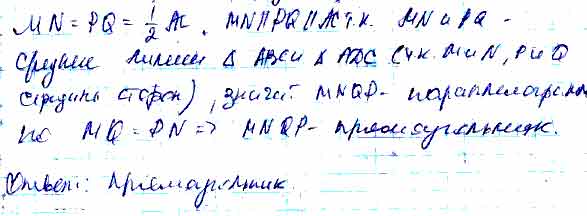 MN = PQ = 1/2 AC. MN || PQ || AC т.к. MN и PQ -
средние линии Δ ABC и Δ ADC (т.к. M и N, P и Q
середины сторон), значит MNQP - параллелограмм
но MQ = PN => MNQP - прямоугольник.
Ответ: прямоугольник